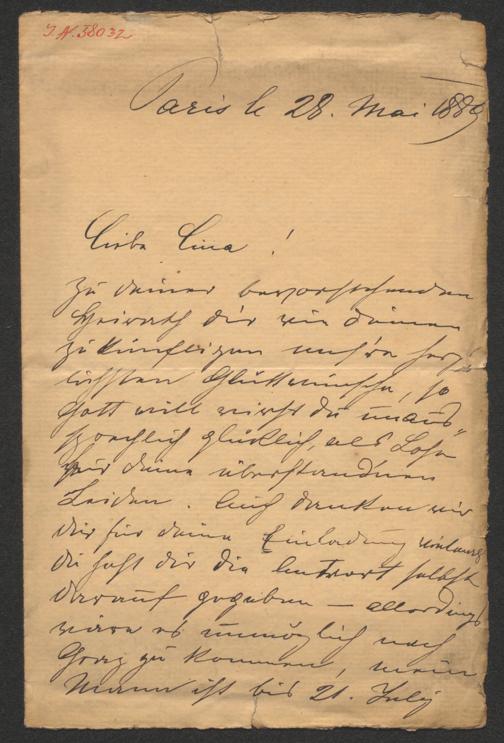 J.N. 58032
Paris le 28. Mai 1889
Liebe Lina!
Zu deiner bevorstehenden
Heirath dir wie deinem
zukünftigen uns're herz-
lichsten Glückwünsche, so
Gott will wirst du unaus-
sprechlich glücklich, als Lohn
für deine überstand'nen
Leiden. Auch danken wir
dir für deine Einladung
du hast dir die Antwort selbst
darauf gegeben – allerdings
wäre es unmöglich nach
Graz zu kommen, mein
Mann ist bis 21. July